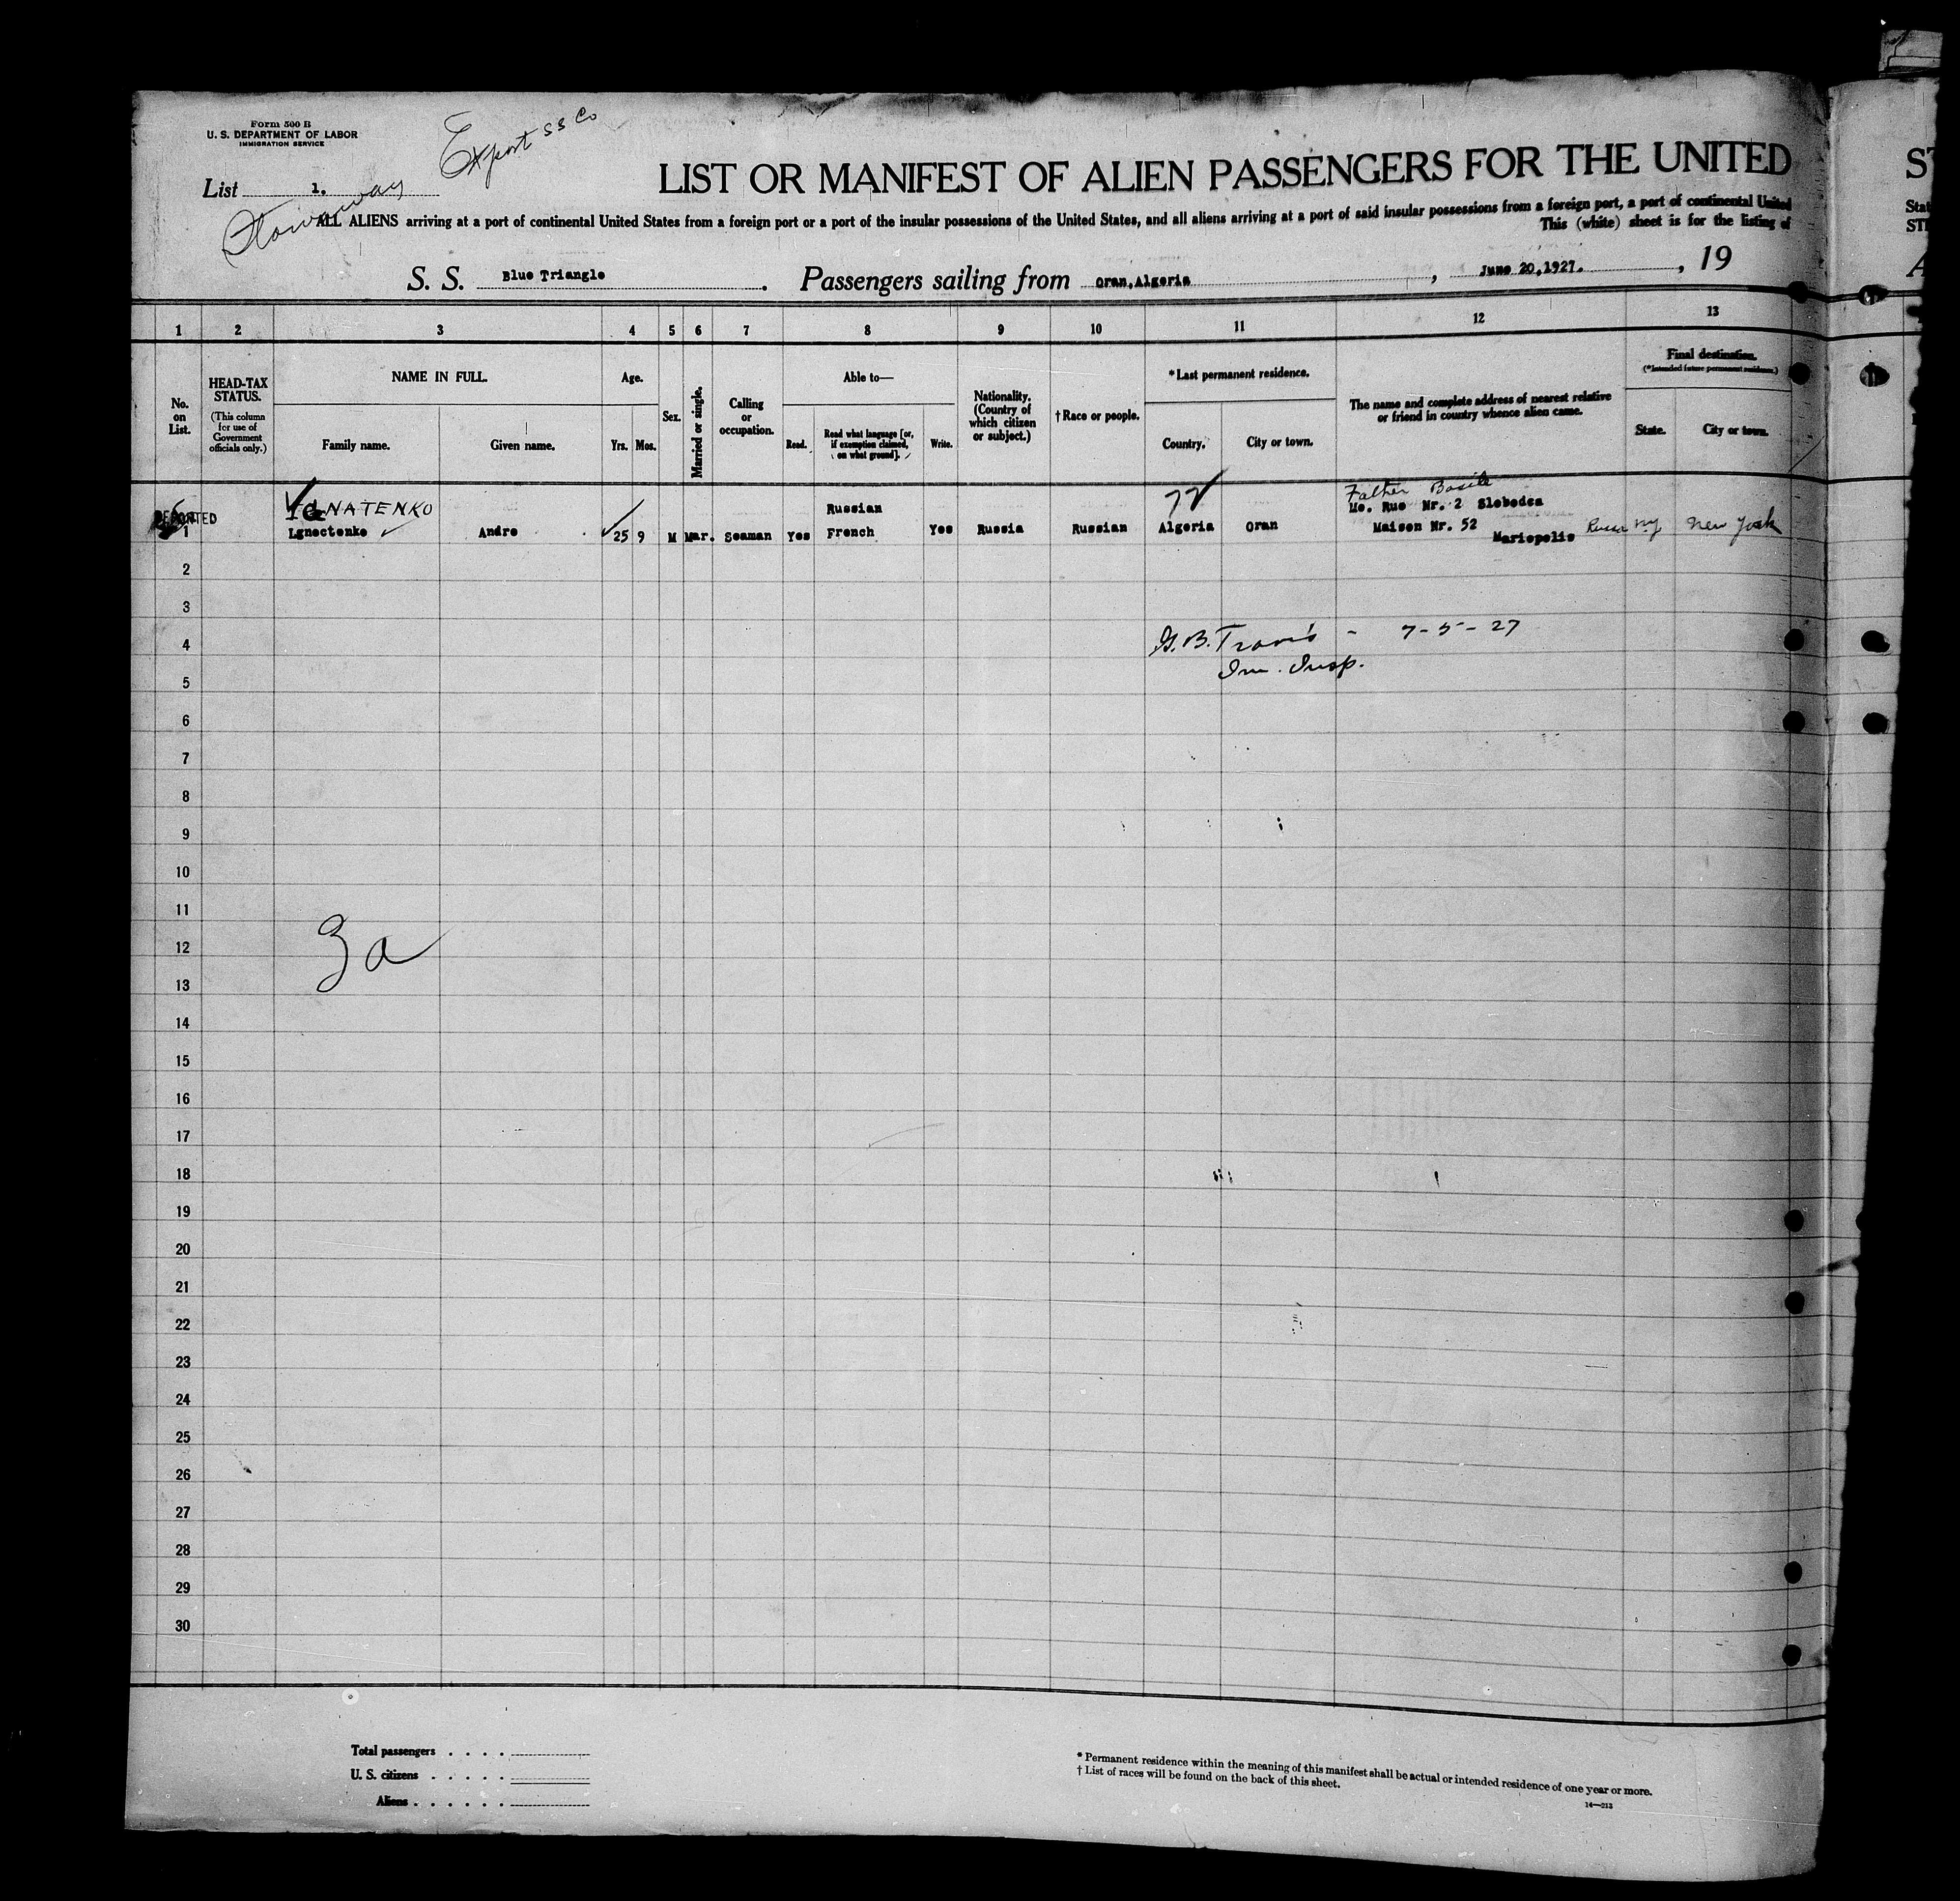 Form 500 B
U. S. DEPARTMENT OF LABOR
IMMIGRATION SERVICE
Export SS Co
List 1.
Stowaway
LIST OR MANIFEST OF ALIEN PASSENGERS FOR THE UNITED
ALL ALIENS arriving at a port of continental United States from a foreign port or a port of the insular possessions of the United States, and all aliens arriving at a port of said insular possessions from a foreign port, a port of continental United
This (white) sheet is for the listing of
S. S. Blue Triangle . Passengers sailing from Oran,Algeria , June 20,1927. , 19
1 2 3 4 5 6 7 8 9 10 11 12 13
No. on List.
HEAD-TAX STATUS.
(This column for use of Government officials only.)
NAME IN FULL.
Family name. Given name.
Age.
Yrs. Mos.
Sex.
Married or single.
Calling or occupation.
Able to—
Read. Read what language [or, if exemption claimed, on what ground]. Write.
Nationality. (Country of which citizen or subject.)
† Race or people.
* Last permanent residence.
Country. City or town.
The name and complete address of nearest relative or friend in country whence alien came.
Final destination.
(*Intended future permanent residence.)
State. City or town.
IGNATENKO Russian Father Basile
Mo. Rue Nr. 2 Slobodca
1 Lgnectenko Andre 25 9 M Mar. Seaman Yes French Yes Russia Russian Algeria Oran Maison Nr. 52
Mariopolis Russia NY New York
2
3
4 G. B. Travis - 7-5-27
Im. Insp.
5
6
7
8
9
10
11
12
13
14
15
16
17
18
19
20
21
22
23
24
25
26
27
28
29
30
Total passengers . . . .
U. S. citizens . . . . .
Aliens . . . . . .
* Permanent residence within the meaning of this manifest shall be actual or intended residence of one year or more.
† List of races will be found on the back of this sheet.
14—213